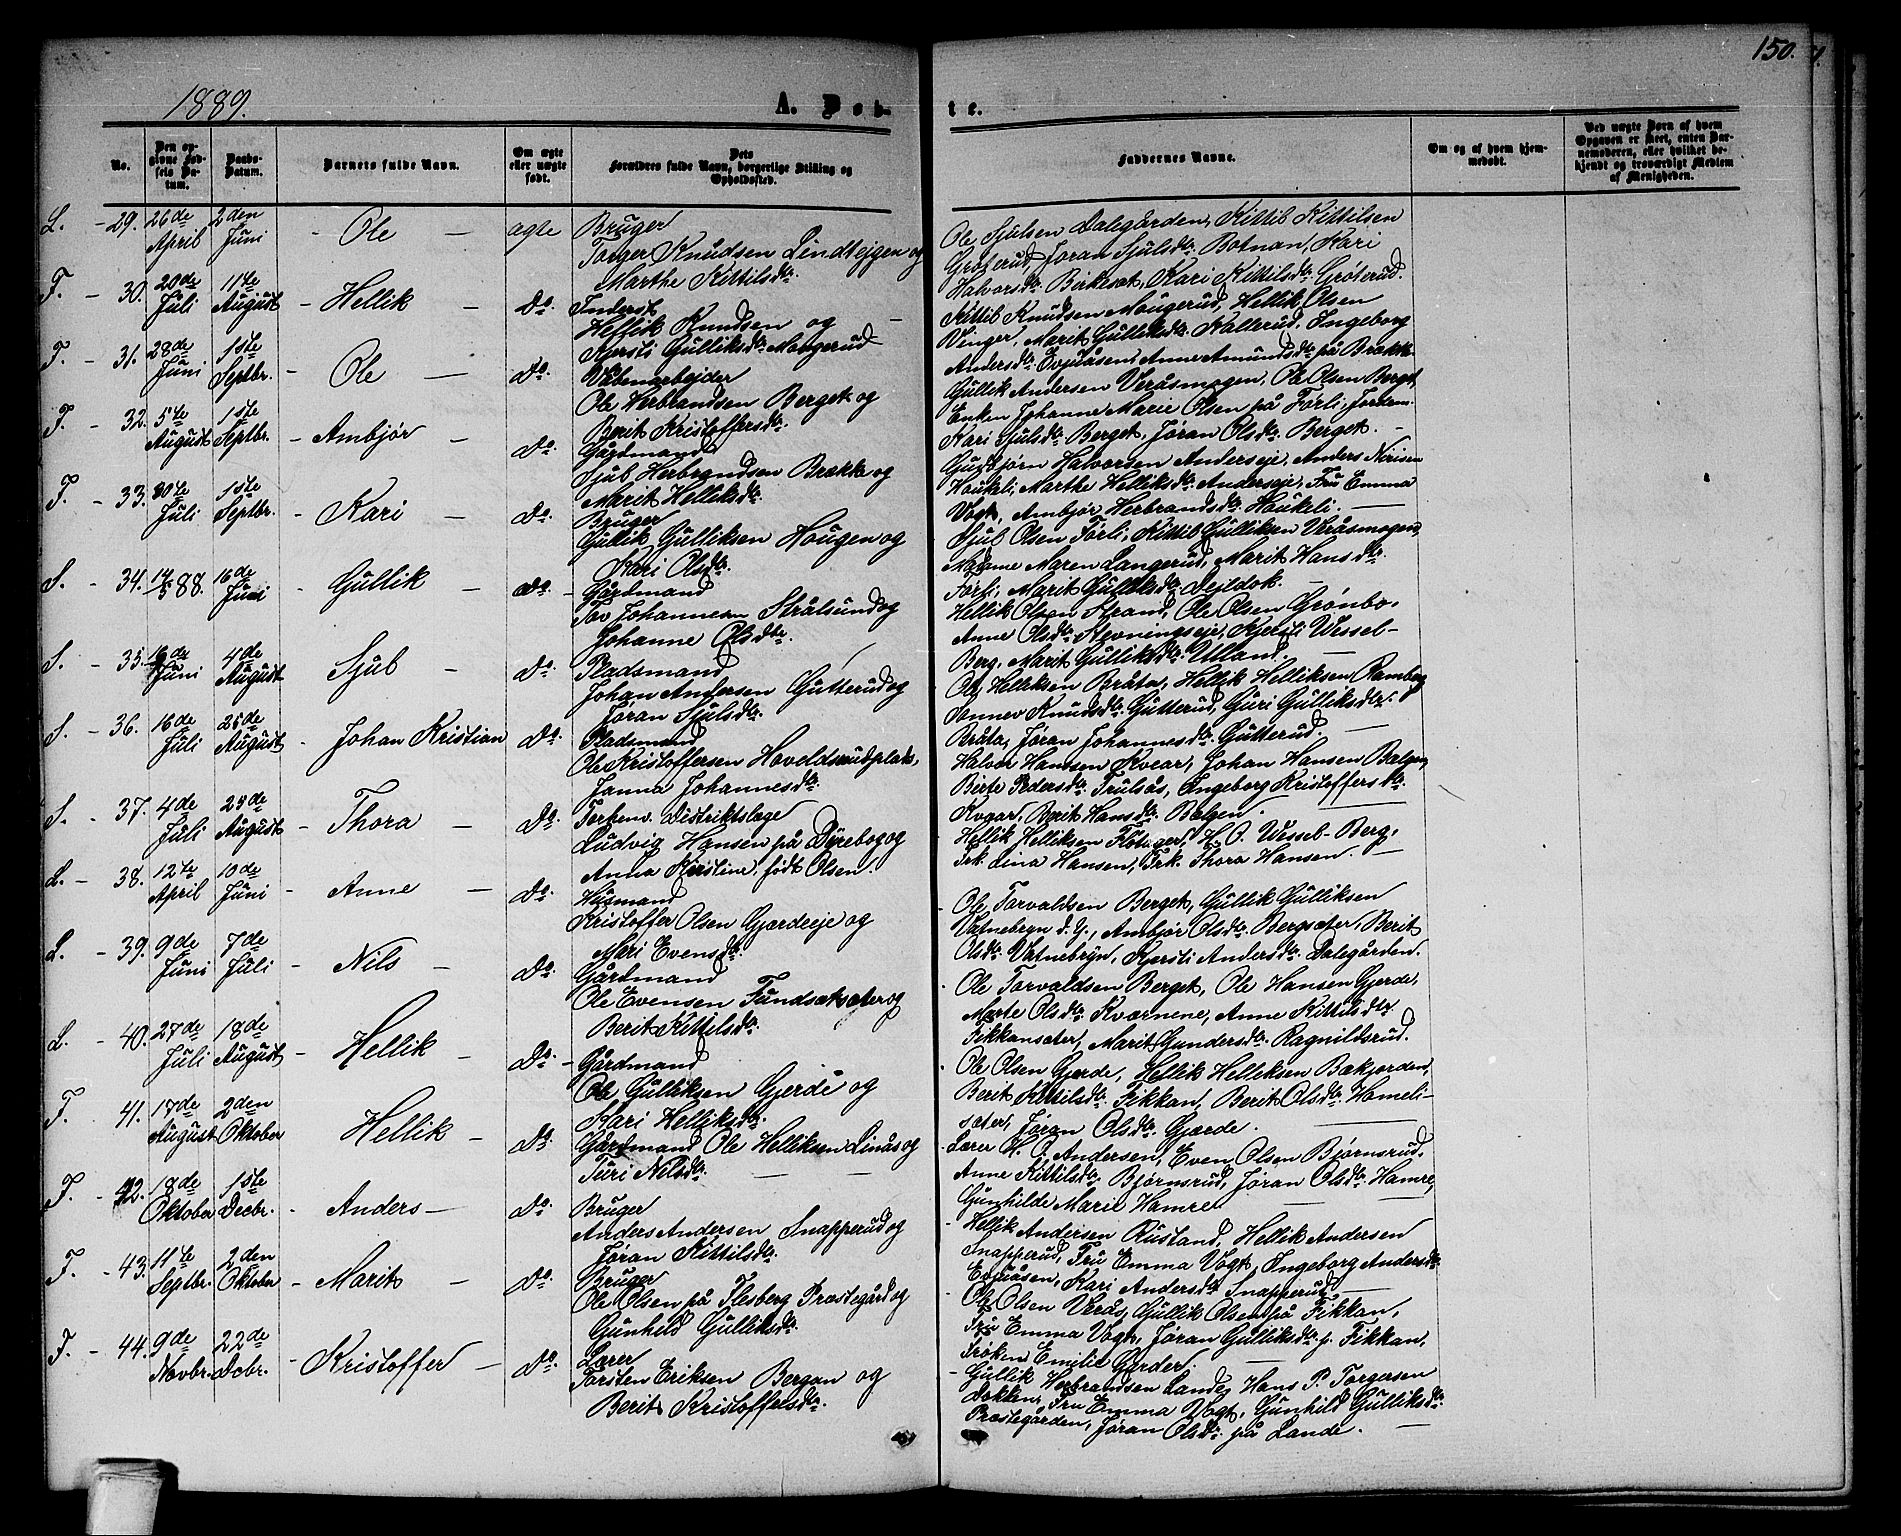 150.
1889.
A. Døb-
te.
No.
Den opgivne Fødsels Datum.
Daabs-Datum.
Barnets fulde Navn.
Om ægte eller uægte født.
Forældres fulde Navn, borgerlige Stilling og Opholdssted.
Faddernes Navne.
Om og af hvem hjemmedøbt.
Ved uægte Børn af hvem Opgaven er skeet, enten Barnemoderen, eller hvilket bekjendt og troværdigt Medlem af Menigheden.
L. - 29. 26de April 2den Juni - Ole - ægte Bruger
Torger Knudsen Lindtejgen og
Marthe Kittilsdtr.
Ole Sjulsen Dalegården, Kittil Kittilsen
Grøterud, Jøran Sjulsdtr. Botnan, Kari
Halvorsdtr. Birkesæt, Kari Kittilsdtr. Grøterud.
F. - 30. 20de Juli 11te August - Hellik - do. Inderst
Hellik Knudsen og
Kjersti Gulliksdtr. Mougerud
Kittil Knudsen Mougerud, Hellik Olsen
Vinger, Marit Gulliksdtr. Kallerud, Ingeborg
Andersdtr. Evjuåsen, Anne Amundsdtr. på Brække.
F. - 31. 28de Juni 1ste Septbr. - Ole - do. Våbenarbejder
Ole Herbrandsen Berget og
Berit Kristoffersdtr.
Gullik Andersen Veråsmogen, Ole Olsen Berget,
Enken Johanne Marie Olsen på Førli, Jordem.
Kari Sjulsdtr. Berget, Jøran Olsdtr. Berget. -
F. - 32. 5te August 1ste Septbr. - Ambjør - do. Gårdmand
Sjul Herbrandsen Brække og
Marit Helliksdtr.
Gudbjørn Halvorsen Anderseje, Anders Nirisen
Houkeli, Marthe Helliksdtr. Anderseje, Fru Emma
Vogt, Ambjør Herbrandsdtr. Houkeli. -
F. - 33. 30te Juli 1ste Septbr. - Kari - do. Bruger
Gullik Gulliksen Hougen og
Kari Olsdtr.
Sjul Olsen Førli, Kittil Gulliksen Veråsmogen,
Madame Maren Langerud, Marit Hansdtr.
Førli, Marit Gulliksdtr. Dejldok. -
S. - 34. 14/5 88. 16de Juni - Gullik - do. - Gårdmand
Tov Johannesen Strålsund og
Johanne Olsdtr.
Hellik Olsen Strand, Ole Olsen Grønbo,
Anne Olsdtr. Stevningseje, Kjersti Wessel-
Berg, Marit Gulliksdtr. Ulland. -
S. - 35. 16de Juni 4de August Sjul - do. Pladsmand
Johan Andersen Gutterud og
Jøran Sjulsdtr.
Ole Helliksen Bråta, Hellik Helliksen Ramberg
Sønnev Knudsdtr. Gutterud, Guri Gulliksdtr.
Bråta, Jøran Johannesdtr. Gutterud. -
S. - 36. 16de Juli 25de August - Johan Kristian do. Pladsmand
Ole Kristoffersen Hovoldsrudplads,
Janna Johannesdtr.
Halvor Hansen Kvear, Johan Hansen Balgen,
Berte Pedersdtr. Trulsås, Ingeborg Kristoffersdtr.
Kvear, Berit Hansdtr. Balgen. -
S. - 37. 4de Juli 25de August - Thora - do. Forhenv. Distriktslæge
Ludvig Hansen på Dyrebog og
Anna Kristine, født Olsen.
Hellik Helliksen Flåtager, H. O. Wessel-Berg,
Frk. Lina Hansen, Frk. Thora Hansen. -
L. - 38. 12te April 10de Juni - Anne - do. Husmand
Kristoffer Olsen Gjerdeeje og
Mari Evensdtr.
Ole Torvaldsen Berget, Gullik Gulliksen
Vatnebryn d. y., Ambjør Olsdtr. Bergsæter, Berit
Olsdtr. Vatnebryn, Kjersti Andersdtr. Dalegården.
L. - 39. 9de Juni 7de Juli - Nils - do. Gårdmand
Ole Evensen Fundsætsæter og
Berit Kittilsdtr.
Ole Torvaldsen Berget, Ole Hansen Gjerde,
Marte Olsdtr. Kværnene, Anne Kittilsdtr.
Fikkansæter, Marit Gundersdtr. Ragnildsrud.
L. - 40. 27de Juli 18de August - Hellik - do. - Gårdmand
Ole Gulliksen Gjerde og
Kari Helliksdtr.
Ole Olsen Gjerde, Hellik Helliksen Bækjorden,
Berit Kittilsdtr. Fikkan, Berit Olsdtr. Hameli-
sæter, Jøran Olsdtr. Gjærde. -
F. 41. 17de August 2den Oktober Hellik - do. Gårdmand Ole Helliksen Linås og
Turi Nilsdtr. - -
Lærer H. O. Andersen, Even Olsen Bjørnsrud,
Anne Kittilsdtr. Bjørnsrud, Jøran Olsdtr. Hamre,
Gunhilde Marie Hamre -
F. - 42. 18de Oktober 1ste Decbr. - Anders - do. Bruger
Anders Andersen Snapperud og
Jøran Kittilsdtr.
Hellik Andersen Rustand, Hellik Andersen
Snapperud, Fru Emma Vogt, Ingeborg Andersdtr.
Evjuåsen, Kari Andersdtr. Snapperud -
F. - 43. 11te Septbr. 2den Oktober - Marit - do. Bruger
Ole Olsen på Flesberg Præstegård og
Gunhild Gulliksdtr.
Ole Olsen Verås, Gullik Olsen på Fikkan,
Fru Emma Vogt, Jøran Gulliksdtr. p. Fikkan,
Frøken Emilie Garder. -
F. - 44. 9de Novbr. 22de Decbr. - Kristoffer - do. Lærer
Torsten Eriksen Bergan og
Berit Kristoffersdtr.
Gullik Herbrandsen Lande, Hans P. Torgersen
Dokken, Fru Emma Vogt, Gunhild Gulliksdtr.
Præstegården, Jøran Olsdtr. på Lande. -